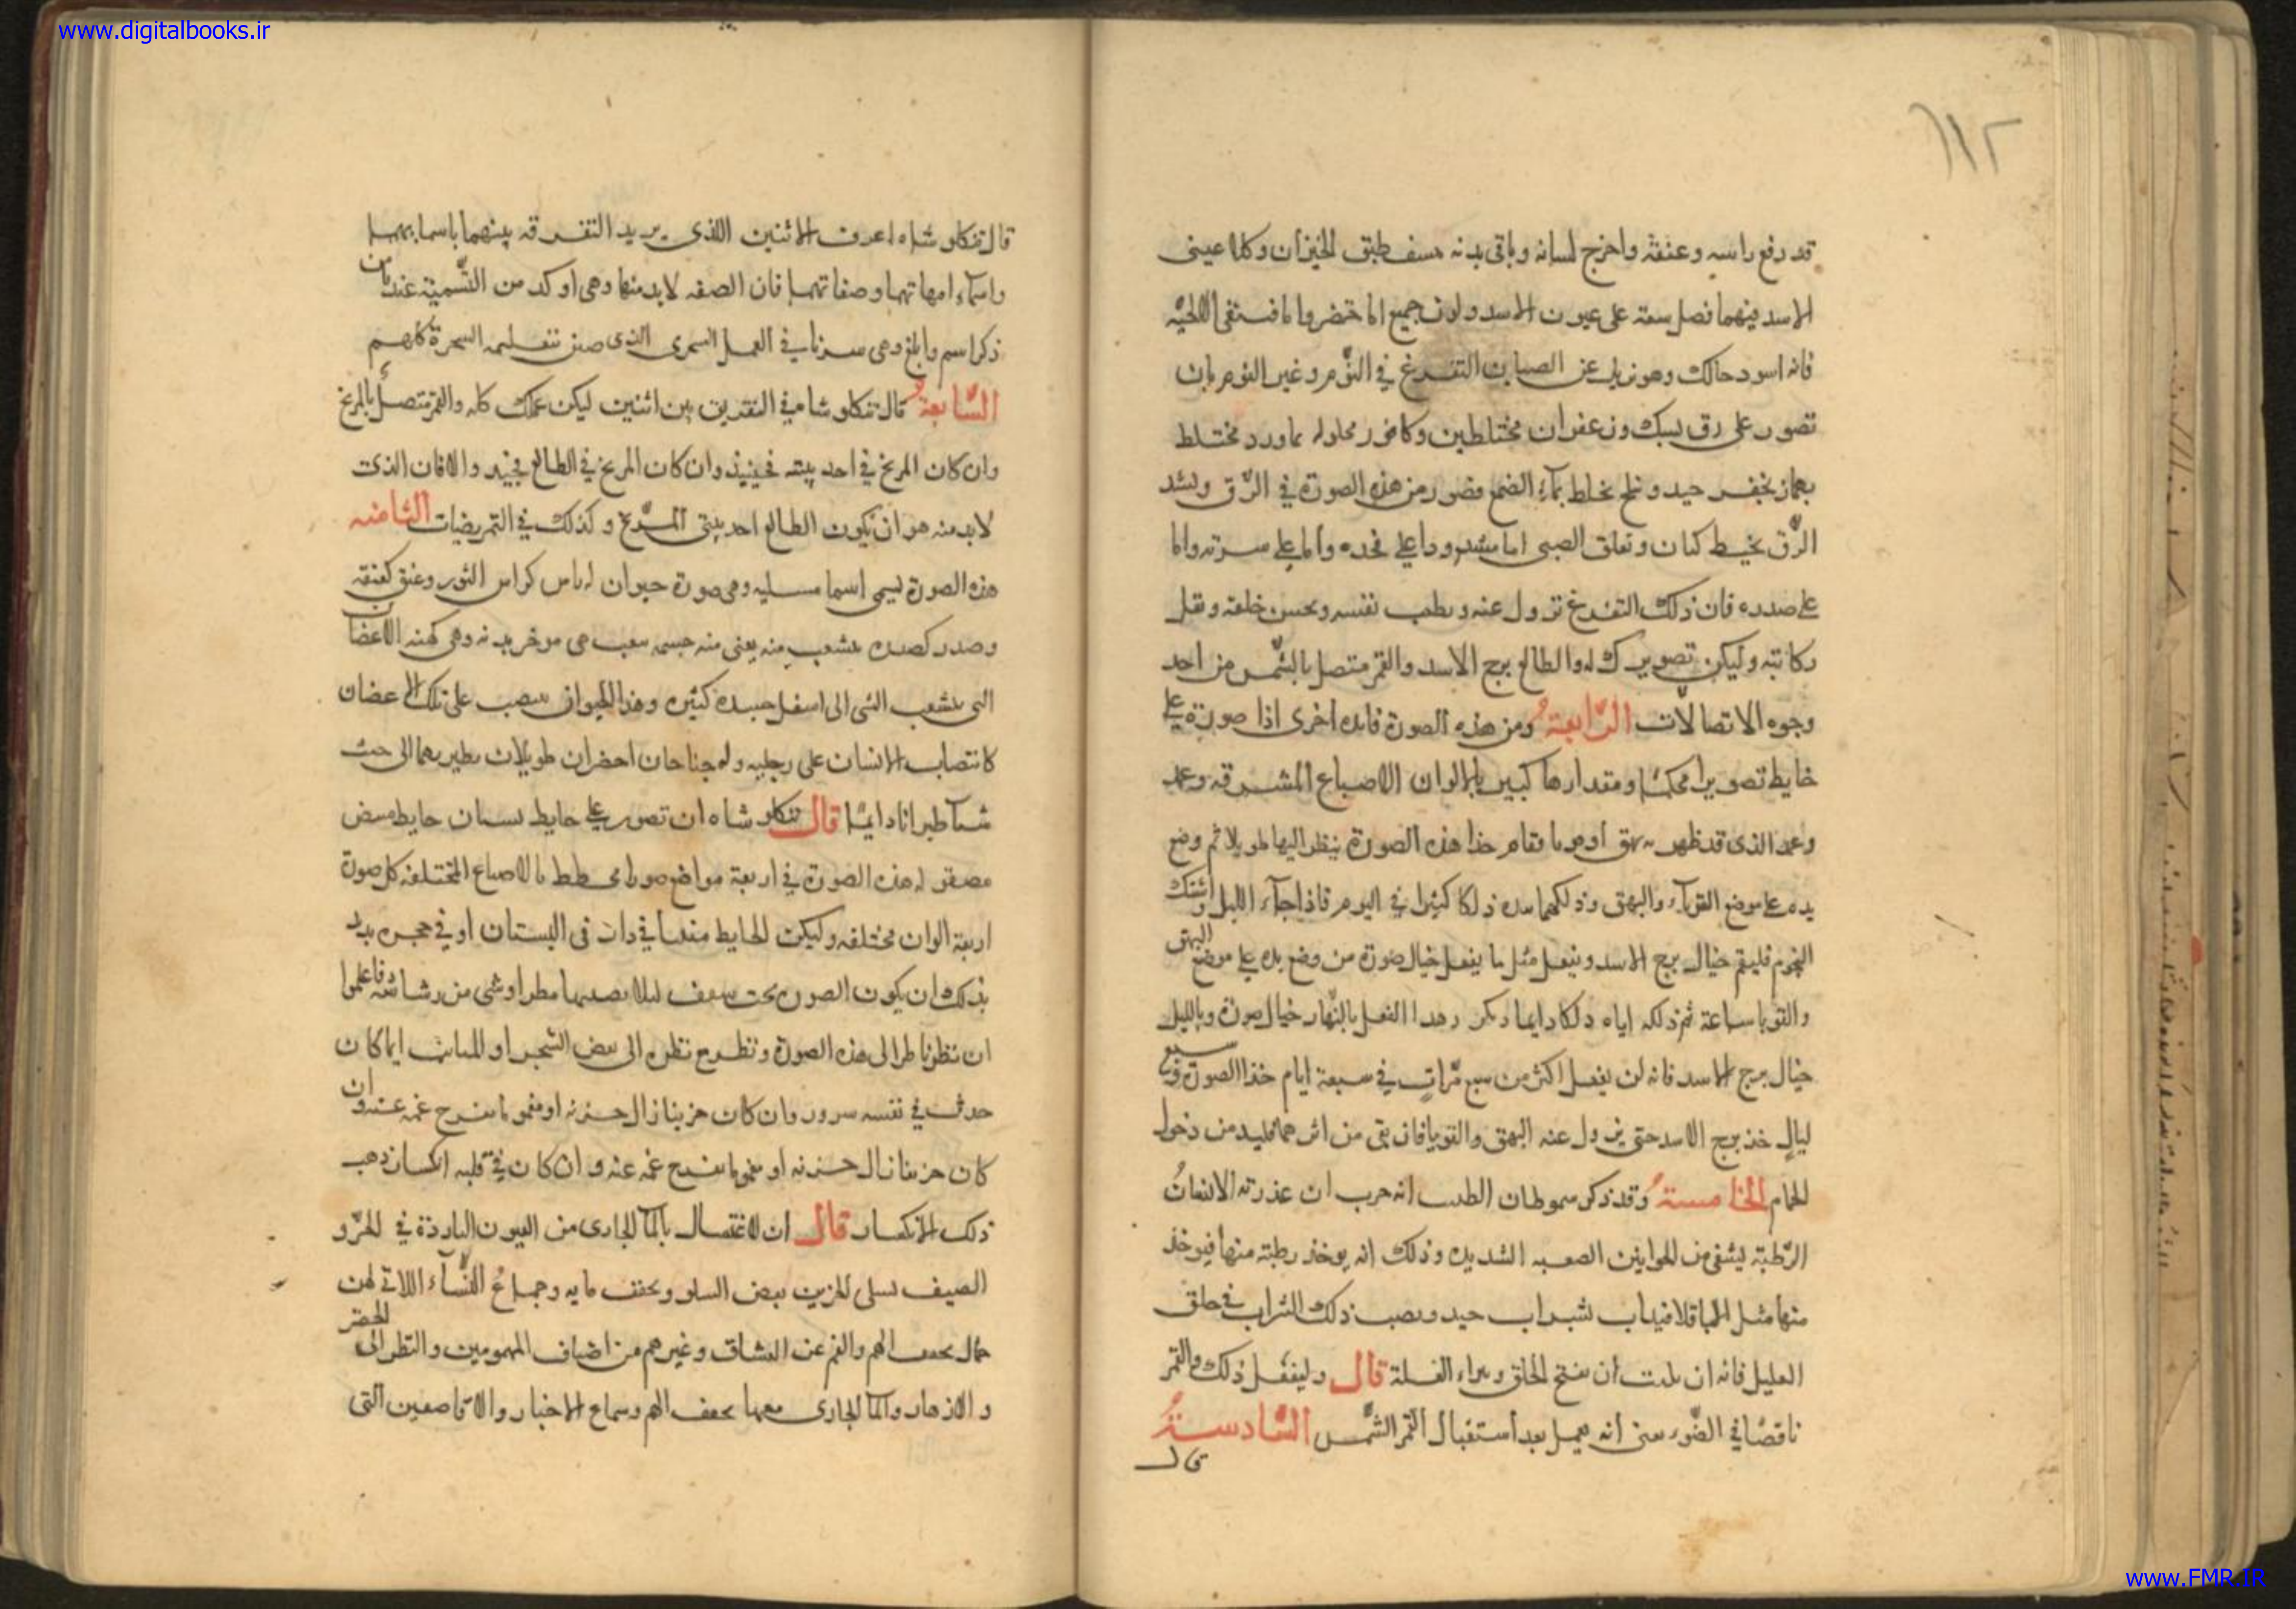 www.digitalbooks.ir
١١٢
قد رفع راسه وعنقه واخرج لسانه وباقى بدنه الخيزران وكلا عينى
الاسد فيهما فضل سعة على عيون الاسد ولون جميع
فانه اسود حالك وهو يزيل عن الصبيان التفزغ فى النوم وغير النوم بان
تصور على رق بسبك وزعفران مختلطين وكافور محلول بماورد مختلط
جيد وملح يخلط بماء الصمغ فصور من هذه الصورة فى الرّق ولشد
الرّق بخيط كتان وتعلق الصبى اما مشدودا على فخذه واما على سرته واما
على صدره فان ذلك التفزغ تزول عنه وبطيب نفسه ويحسن خلقه وتقل
وليكن تصويرك له والطالع برج الاسد والقمر متصل بالشمس من احد
وجوه الاتصالات الرّابعة ومن هذه الصورة فايدة اخرى اذا صورة على
حايط تصويرا محكما ومقدارها كبير بالالوان الاصباغ المشرقة وعمد
وعمد الذى قد ظهر به بهق او قوبا فقام حذا هذه الصورة ينظر اليها طويلا ثم وضع
يده على موضع القوباء والبهق ودلكهما بيده دلكا كثيرا فى اليوم فاذا جاء الليل
النجوم فليقم حيال برج الاسد ويفعل مثل ما يفعل حيال صورة من وضع يده على موضع البهق
والقوبا ساعة ثم دلكه اياه دلكا دايما وليكن هذا الفعل بالنّهار حيال صورة وبالليل
حيال برج الاسد فانه لن يفعل اكثر من سبع مرّاتٍ فى سبعة ايام حذا الصورة وفى سبع
ليالٍ حذ برج الاسد حتى يزول عنه البهق والقوبا فان بقى من اثرهما فليد من دخول
الحمام الخامسة وقد ذكر سموطان الطبيب انه جرب ان عذرته الانسان
الرّطبة ليشفى من الخوانيق الصعبه الشديده وذلك انه يوخذ رطبة منها فيوخذ
منها مثل الباقلا فيذاب بشراب جيد ويصب ذلك الشراب فى حلق
العليل فانه ان يلبث ان يفتح الحلق ويبراء العلة قال وليفعل ذلك والقمر
ناقصًا فى الضّوء يعنى انه يعمل بعد استقبال القمر الشّمس السّادسة
قال
قال تنكلو شاه اعرف الاثنين اللذى يريد التفرقه بينهما باسمايهما
واسماء امهاتهما وصفاتهما فان الصفه لا بد منها وهى اوكد من التسمية عندنا من
ذكر اسم وابلغ وهى سرنا فى العمل السحرى الذى ضن بتعليمه السحرة كلهم
السّابعة قال تنكلو شاه فى التفريق بين اثنين ليكن عملك كله والقمر متصل بالمريخ
وان كان المريخ فى احد بيتيه فجيد وان كان المريخ فى الطالع فجيد والا فان الذى
لا بد منه هو ان يكون الطالع احد بيتى المريخ وكذلك فى التمريضات الثامنه
هذه الصورة ليسمى اسما سليه وهى صورة حيوان له راس كراس الثور وعنق كعنقه
وصدر كصدره يتشعب منه يعنى منه جسمه شعب هى موخر بدنه وهى كهنه الاغصان
التى يتشعب التى الى اسفل جسده كثيره وهذا الحيوان ينتصب على تلك الاغصان
كانتصاب الانسان على رجليه وله جناحان اخضران طويلان يطير بهما الى حيث
شاء طيرانا دايمًا قال تنكلو شاه ان تصور على حايط بستان حايط مبيض
مصقول هذه الصورة فى اربعة مواضع صورا مخطط بالاصباغ المختلفه كل صورة
اربعة الوان مختلفه وليكن الحايط منها فى دار فى البستان او فى حجرة يريد
بذلك ان يكون الصورة تحت سقف ليلا يصيبها مطر او شى من رشاشه فاعلموا
ان نظر ناظر الى هذه الصورة ونظر مع نظره الى بعض الشجر او النبات ايما كان
حدث فى نفسه سرور وان كان حزينا زال حزنه او مغموما يفرج غمه عنه وان
كان حزينا زال حزنه او مغموما يفرح غمه عنه وان كان فى قلبه انكسار ذهب
ذلك الانكسار قال ان الاغتسال بالماء الجارى من العيون الباردة فى الحرّ و
الصيف تسلى الحزين بعض السلو ويخفف ما به وجماع النّساء اللاتى لهن
جمال يخفف الهم والغم عن العشاق وغيرهم من اصناف المهمومين والنظر الى الخضر
والازهار والماء الجارى معها يخفف الهم وسماع الاخبار والاقاصيص التى
www.FMR.IR